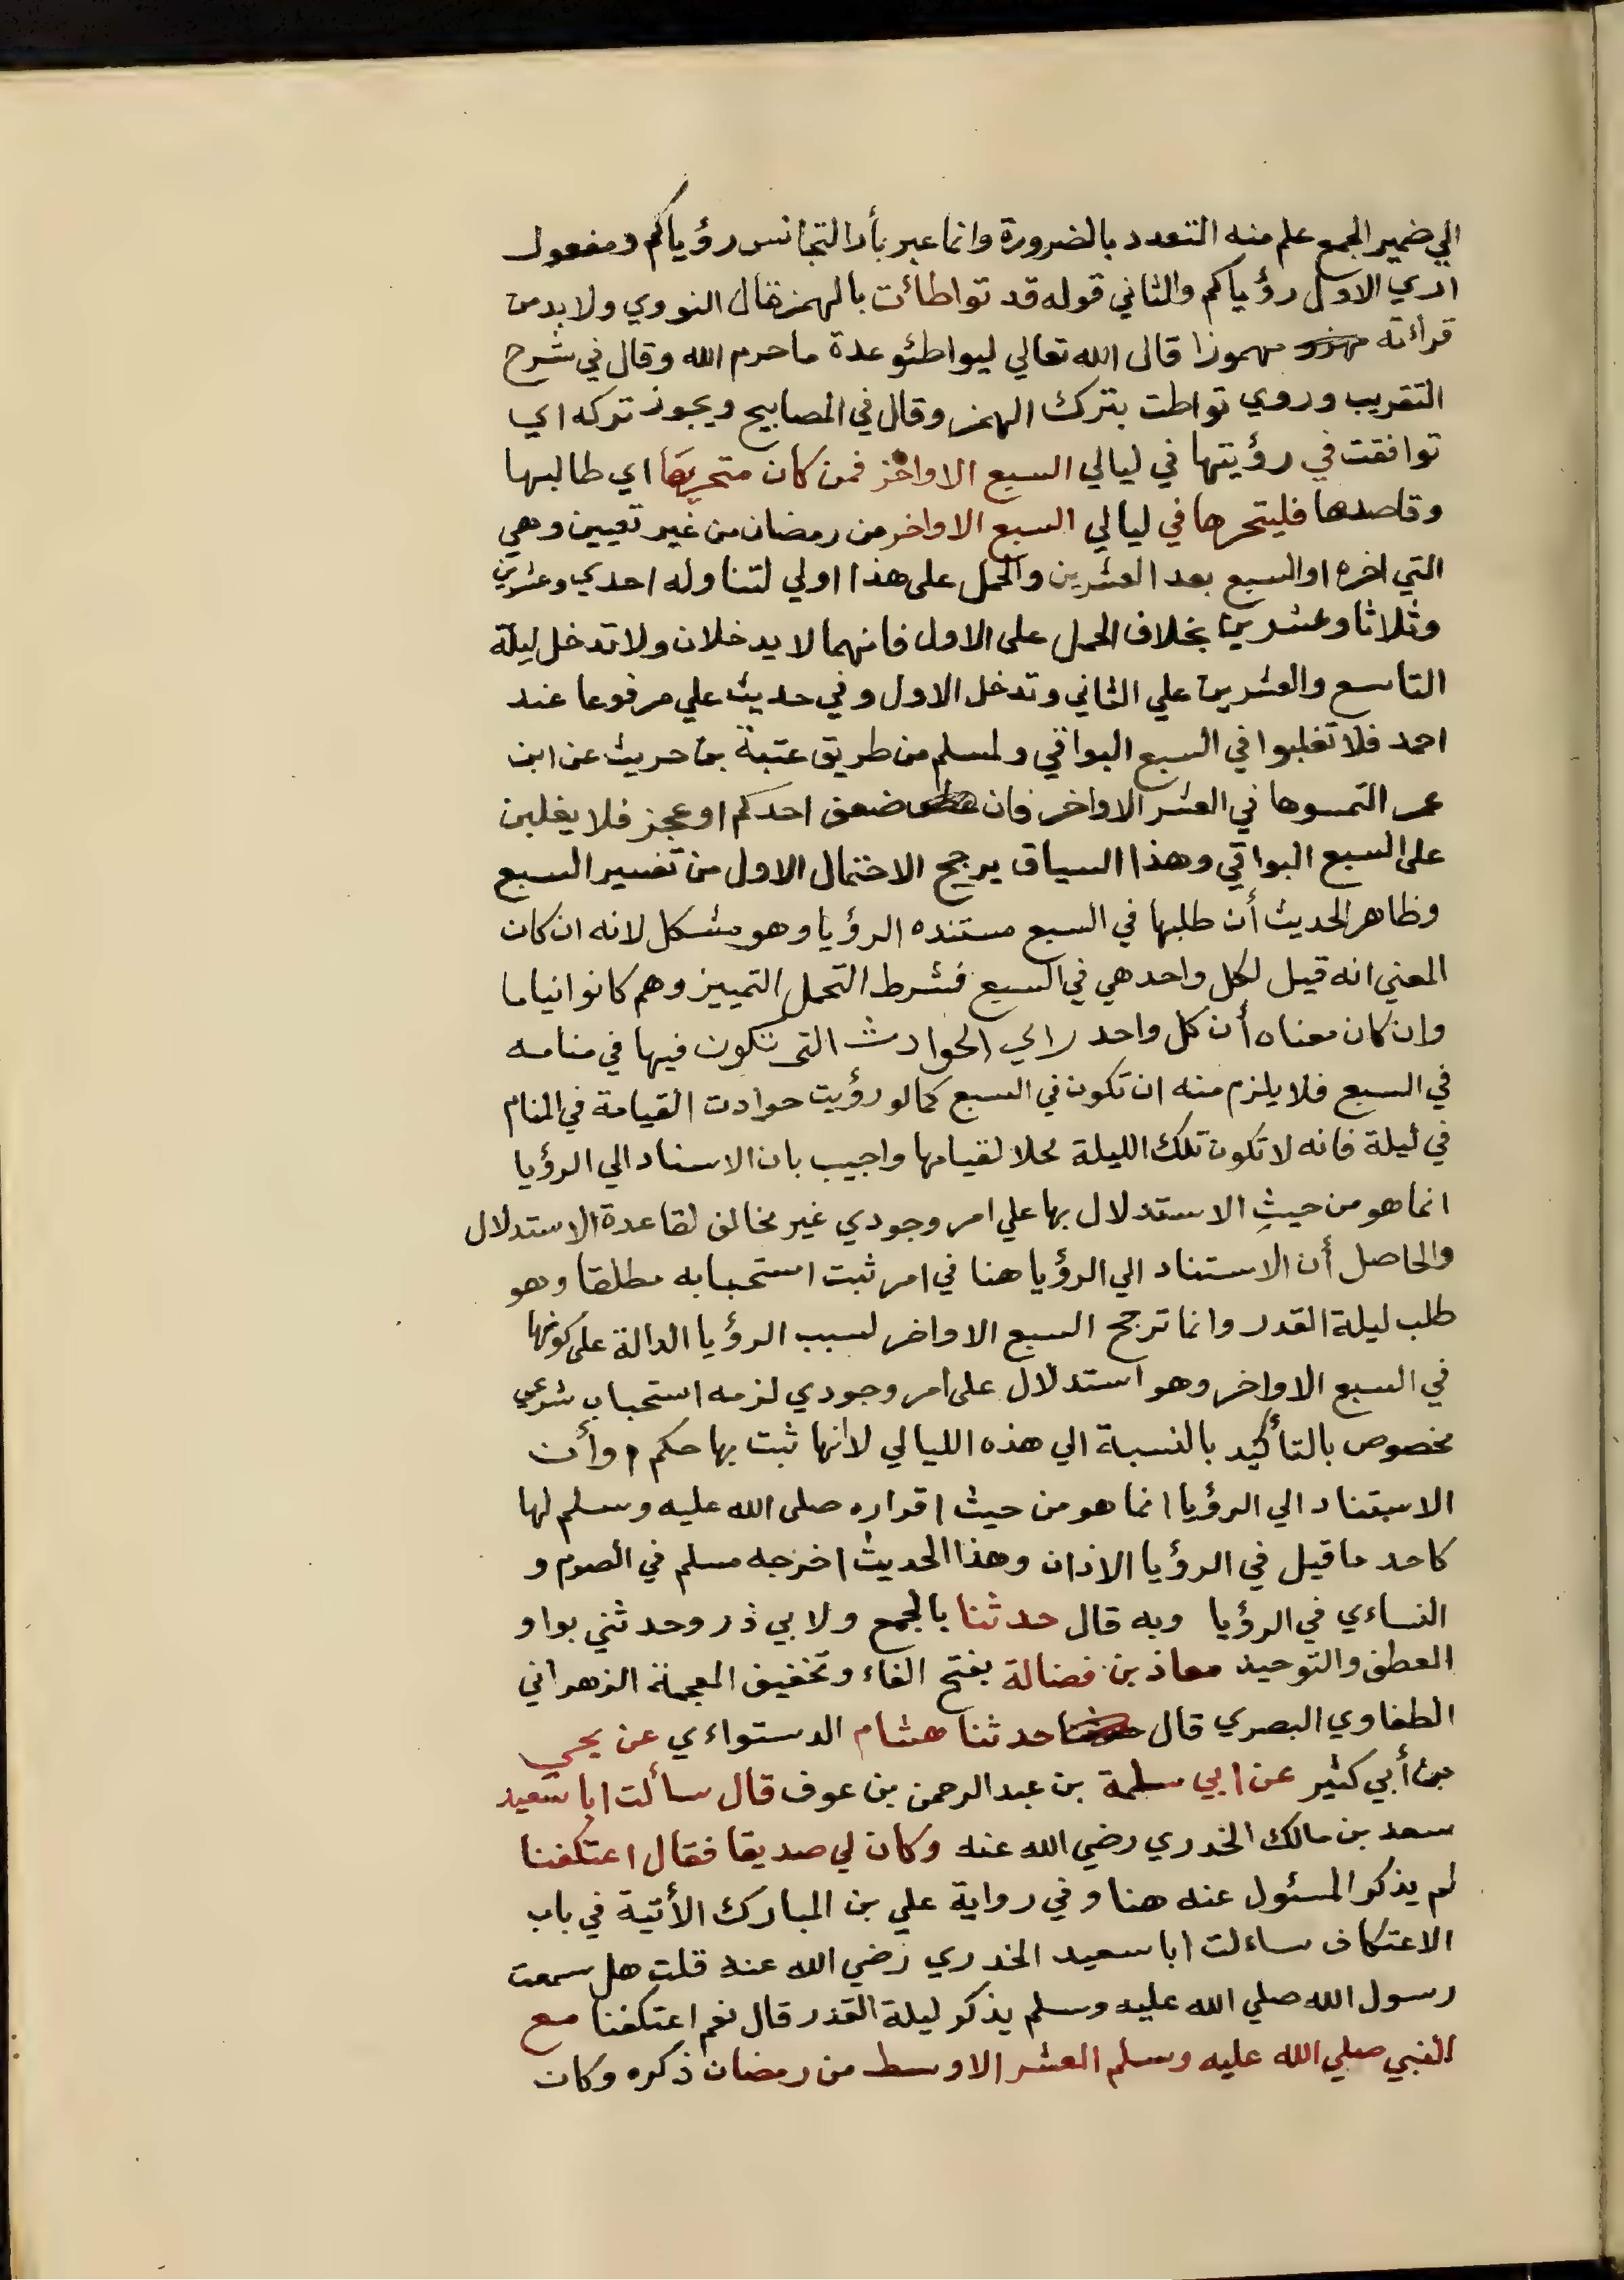 الي ضمير الجمع علم منه التعدد بالضرورة وانما عبر بأر التجانس رؤياكم ومفعول
اري الاول رؤياكم والثاني قوله قد تواطأت بالهمز قال النووي ولا بد من
قراءته مهموزا قال الله تعالي ليواطئو عدة ما حرم الله وقال في شرح
التقريب وروي تواطت بترك الهمز وقال في المصابيح ويجوز تركه اي
توافقت في رؤيتها في ليالي السبع الاواخر فمن كان متحريها اي طالبها
وقاصدها فليتحرها في ليالي السبع الاواخر من رمضان من غير تعيين وهي
التي اخره او السبع بعد العشرين والحمل على هذا اولي لتناوله احدي وعشرين
وثلاثا وعشرين بخلاف الحمل على الاول فانهما لا يدخلان ولا تدخل ليلة
التاسع والعشرين علي الثاني وتدخل الاول وفي حديث علي مرفوعا عند
احمد فلا تغلبوا في السبع البواقي ولمسلم من طريق عتبة بن حريث عن ابن
عمر التمسوها في العشر الاواخر فان ضعف احدكم او عجز فلا يغلبن
على السبع البواقي وهذا السياق يرجح الاحتمال الاول من تفسير السبع
وظاهر الحديث أن طلبها في السبع مستنده الرؤيا وهو مشكل لانه ان كان
المعني انه قيل لكل واحد هي في السبع فشرط التحمل التمييز وهم كانوا نياما
وان كان معناه أن كل واحد راي الحوادث التي تكون فيها في منامه
في السبع فلا يلزم منه ان تكون في السبع كما لو رؤيت حوادت القيامة في المنام
في ليلة فانه لا تكون تلك الليلة محلا لقيامها واجيب بان الاسناد الي الرؤيا
انما هو من حيث الاستدلال بها علي امر وجودي غير مخالف لقاعدة الاستدلال
والحاصل أن الاستناد الي الرؤيا هنا في امر ثبت استحبابه مطلقا وهو
طلب ليلة القدر وانما ترجح السبع الاواخر لسبب الرؤيا الدالة على كونها
في السبع الاواخر وهو استدلال على امر وجودي لزمه استحباب شرعي
مخصوص بالتأكيد بالنسبة الي هذه الليالي لانها ثبت بها حكم ا وأن
الاستناد الي الرؤيا انما هو من حيث اقراره صلى الله عليه وسلم لها
كاحد ما قيل في الرؤيا الاذان وهذا الحديث اخرجه مسلم في الصوم و
النساءي في الرؤيا وبه قال حدثنا بالجمع ولابي ذر وحدثني بواو
العطف والتوحيد معاذ بن فضالة بفتح الفاء وتخفيف المعجمة الزهراني
الطفاوي البصري قال حدثنا هشام الدستواءي عن يحيي
بن أبي كثير عن ابي سلمة بن عبد الرحمن بن عوف قال سألت ابا سعيد
سعد بن مالك الخدري رضي الله عنه وكان لي صديقا فقال اعتكفنا
لم يذكر المسئول عنه هنا وفي رواية علي بن المبارك الأتية في باب
الاعتكاف ساءلت ابا سعيد الخدري رضي الله عنه قلت هل سمعت
رسول الله صلي الله عليه وسلم يذكر ليلة القدر قال نعم اعتكفنا مع
النبي صلي الله عليه وسلم العشر الاوسط من رمضان ذكره وكان